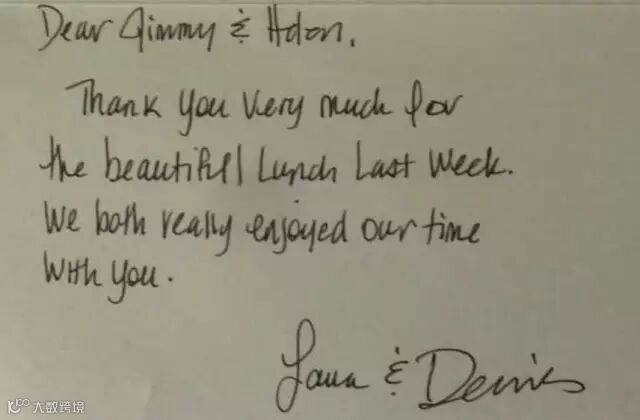 Dear Jimmy & Helen,
Thank you very much for
the beautiful lunch last week.
We both really enjoyed our time
with you.
Laura & Dennis
大数跨境